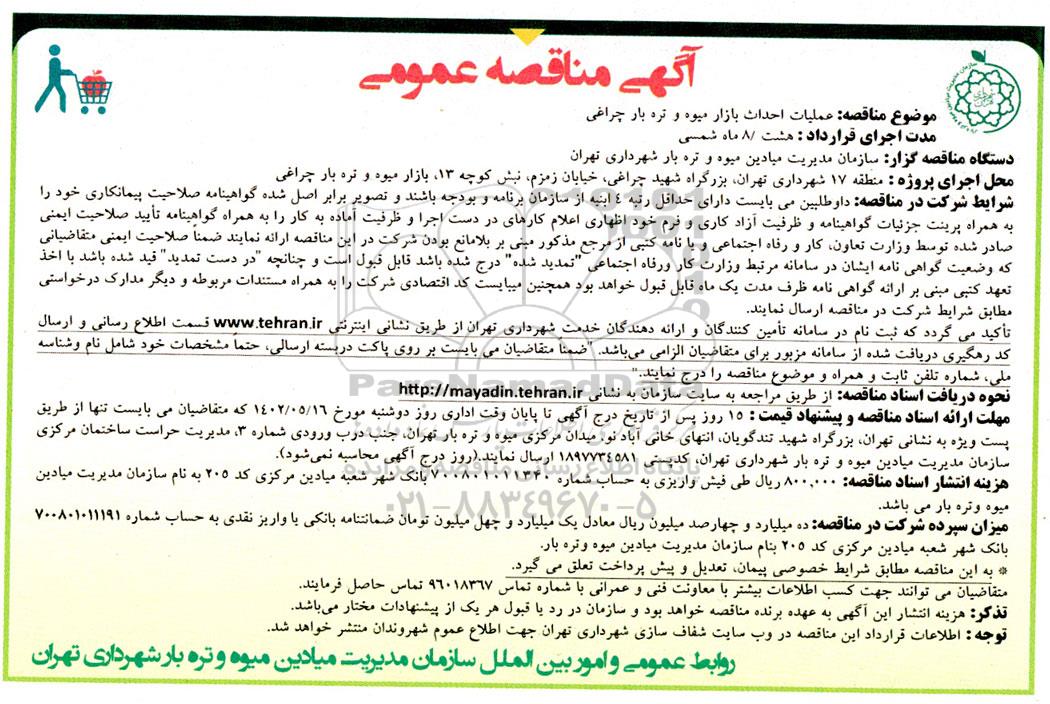 آگهی مناقصه عمومی
موضوع مناقصه: عملیات احداث بازار میوه و تره بار چراغی
مدت اجرای قرارداد : هشت /۸ ماه شمسی
دستگاه مناقصه گزار: سازمان مدیریت میادین میوه و تره بار شهرداری تهران
محل اجرای پروژه : منطقه ۱۷ شهرداری تهران، بزرگراه شهید چراغی، خیابان زمزم، نبش کوچه ۱۳، بازار میوه و تره بار چراغی
شرایط شرکت در مناقصه: داوطلبین می بایست دارای حداقل رتبه ٤ ابنیه از سازمان برنامه و بودجه باشند و تصویر برابر اصل شده گواهینامه صلاحیت پیمانکاری خود را
به همراه پرینت جزئیات گواهینامه و ظرفیت آزاد کاری و فرم خود اظهاری اعلام کارهای در دست اجرا و ظرفیت آماده به کار را به همراه گواهینامه تأیید صلاحیت ایمنی
صادر شده توسط وزارت تعاون، کار و رفاه اجتماعی و یا نامه کتبی از مرجع مذکور مبنی بر بلامانع بودن شرکت در این مناقصه ارائه نمایند ضمناً صلاحیت ایمنی متقاضیانی
که وضعیت گواهی نامه ایشان در سامانه مرتبط وزارت کار ورفاه اجتماعی "تمدید شده" درج شده باشد قابل قبول است و چنانچه "در دست تمدید" قید شده باشد با اخذ
تعهد کتبی مبنی بر ارائه گواهی نامه ظرف مدت یک ماه قابل قبول خواهد بود همچنین میبایست کد اقتصادی شرکت را به همراه مستندات مربوطه و دیگر مدارک درخواستی
مطابق شرایط شرکت در مناقصه ارسال نمایند.
تأکید می گردد که ثبت نام در سامانه تأمین کنندگان و ارائه دهندگان خدمت شهرداری تهران از طریق نشانی اینترنتی www.tehran.ir قسمت اطلاع رسانی و ارسال
کد رهگیری دریافت شده از سامانه مزبور برای متقاضیان الزامی می‌باشد. "ضمناً متقاضیان می بایست بر روی پاکت دربسته ارسالی، حتماً مشخصات خود شامل نام وشناسه
ملی، شماره تلفن ثابت و همراه و موضوع مناقصه را درج نمایند."
نحوه دریافت اسناد مناقصه: از طریق مراجعه به سایت سازمان به نشانی http://mayadin.tehran.ir
مهلت ارائه اسناد مناقصه و پیشنهاد قیمت : ۱۵ روز پس از تاریخ درج آگهی تا پایان وقت اداری روز دوشنبه مورخ ۱۴۰۲/۰۵/۱۶ که متقاضیان می بایست تنها از طریق
پست ویژه به نشانی تهران، بزرگراه شهید تندگویان، انتهای خانی آباد نو، میدان مرکزی میوه و تره بار تهران، جنب درب ورودی شماره ۳، مدیریت حراست ساختمان مرکزی
سازمان مدیریت میادین میوه و تره بار شهرداری تهران، کدپستی ۱۸۹۷۷۳٤۵۸۱ ارسال نمایند.(روز درج آگهی محاسبه نمی‌شود).
هزینه انتشار اسناد مناقصه: ۸۰۰,۰۰۰ ریال طی فیش واریزی به حساب شماره ۷۰۰۸۰۱۰۱۱۳۴۰ بانک شهر شعبه میادین مرکزی کد ۲۰۵ به نام سازمان مدیریت میادین
میوه وتره بار می باشد.
میزان سپرده شرکت در مناقصه: ده میلیارد و چهارصد میلیون ریال معادل یک میلیارد و چهل میلیون تومان ضمانتنامه بانکی یا واریز نقدی به حساب شماره ۷۰۰۸۰۱۰۱۱۱۹۱
بانک شهر شعبه میادین مرکزی کد ۲۰۵ بنام سازمان مدیریت میادین میوه وتره بار.
* به این مناقصه مطابق شرایط خصوصی پیمان، تعدیل و پیش پرداخت تعلق می گیرد.
متقاضیان می توانند جهت کسب اطلاعات بیشتر با معاونت فنی و عمرانی با شماره تماس ۹۶۰۱۸۳۶۷ تماس حاصل فرمایند.
تذکر: هزینه انتشار این آگهی به عهده برنده مناقصه خواهد بود و سازمان در رد یا قبول هر یک از پیشنهادات مختار می‌باشد.
توجه : اطلاعات قرارداد این مناقصه در وب سایت شفاف سازی شهرداری تهران جهت اطلاع عموم شهروندان منتشر خواهد شد.
روابط عمومی و امور بین الملل سازمان مدیریت میادین میوه و تره بار شهرداری تهران
پایگاه اطلاع رسانی مناقصه و مزایده
۰۲۱-۸۸۳۴۹۶۷۰-۵